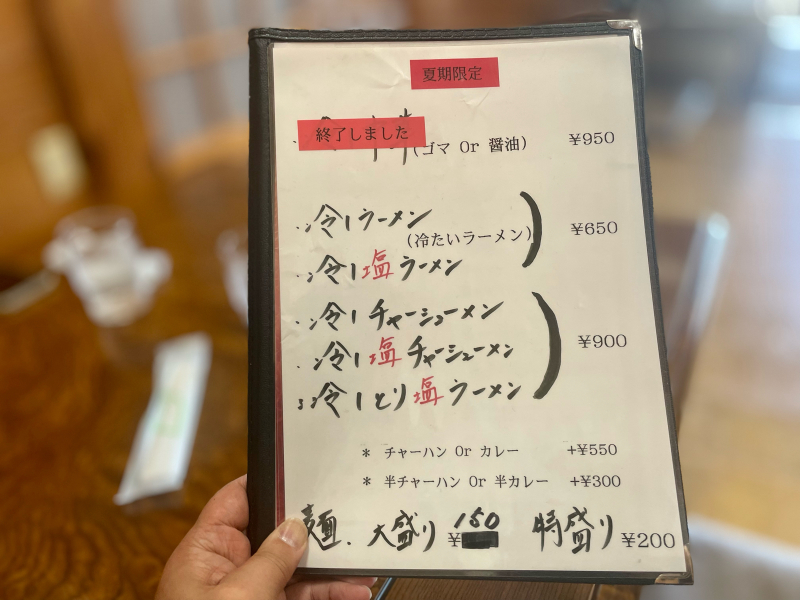 夏期限定
終了しました
(ゴマ Or 醤油) ¥950
冷しラーメン
(冷たいラーメン) ¥650
冷し塩ラーメン
冷しチャーシューメン
冷し塩チャーシューメン ¥900
冷しとり塩ラーメン
* チャーハン Or カレー +¥550
* 半チャーハン Or 半カレー +¥300
麺、大盛り ¥150 特盛り ¥200